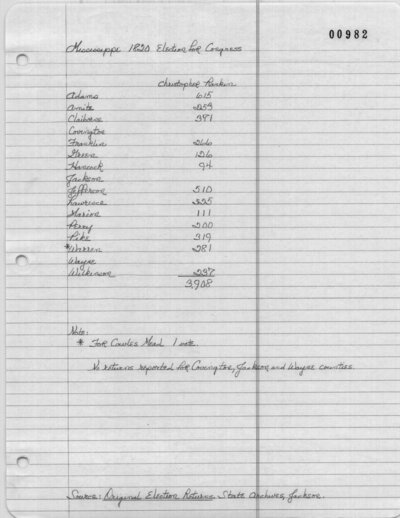 00982
Mississippi 1820 Election for Congress
Christopher Rankin
Adams 615
Amite 259
Claiborne 391
Covington
Franklin 266
Green 126
Hancock 94
Jackson
Jefferson 510
Lawrence
Marion 111
Perry 200
Pike 319
*Warren 281
Wayne
Wilkinson 237
3,908
Note:
* For Cowles Mead 1 vote.
No returns reported for Covington, Jackson, and Wayne counties.
Source: Original Election Returns, State Archives, Jackson.